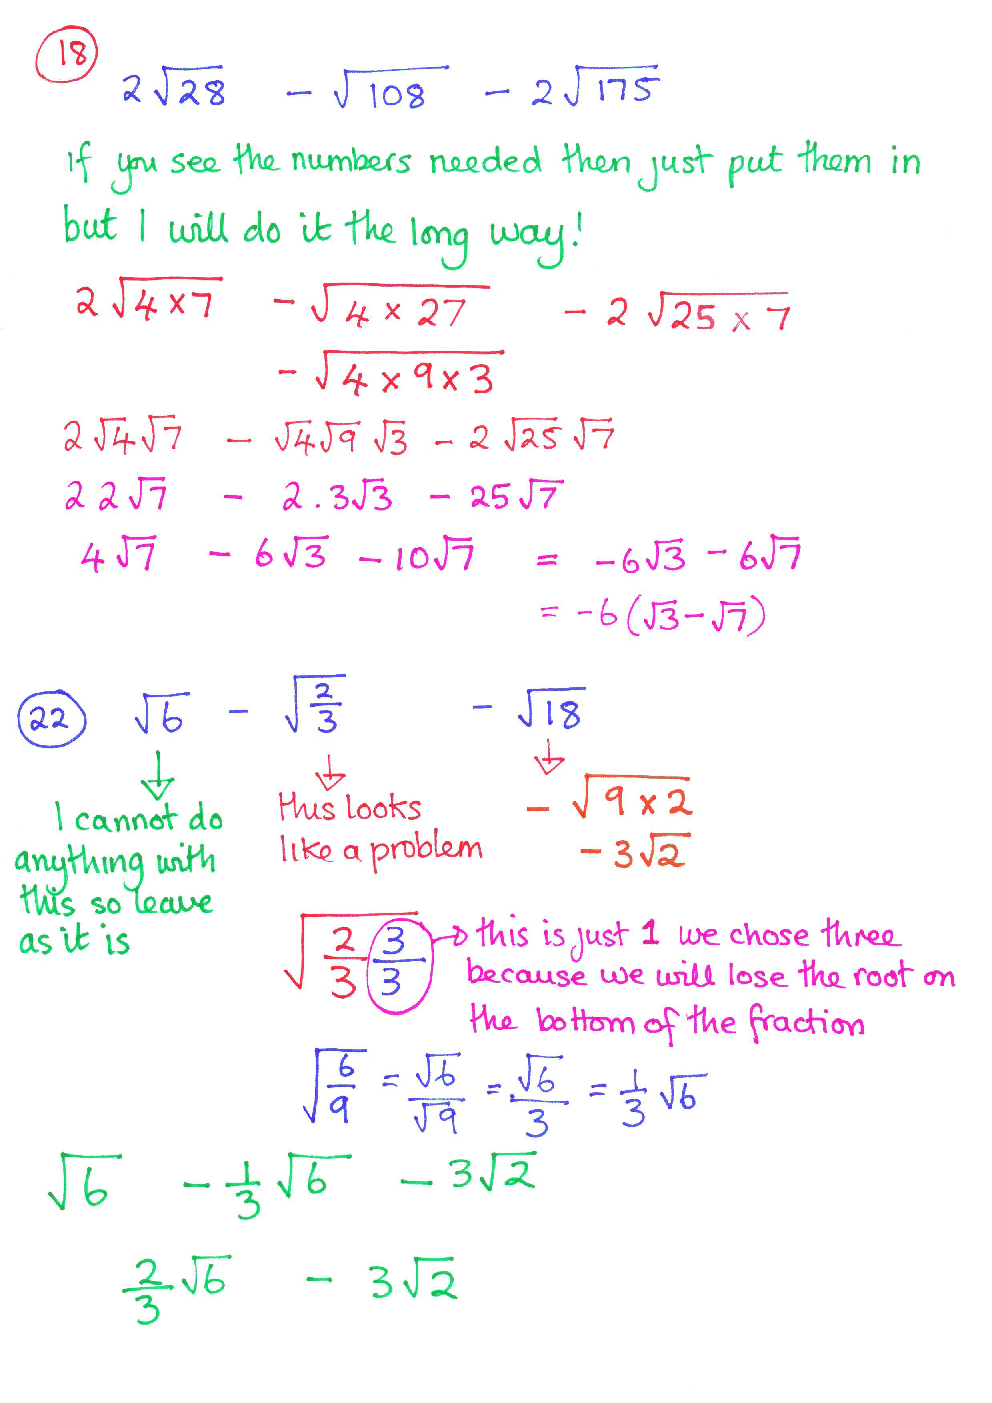 18
2√28 - √108 - 2√175
If you see the numbers needed then just put them in
but I will do it the long way!
2√4×7 - √4×27 - 2√25×7
- √4×9×3
2√4√7 - √4√9√3 - 2√25√7
2 2√7 - 2.3√3 - 25√7
4√7 - 6√3 - 10√7 = -6√3 - 6√7
= -6(√3-√7)
22 √6 - √2/3 - √18
I cannot do
anything with
this so leave
as it is
this looks
like a problem
- √9×2
- 3√2
√2/3 3/3 → this is just 1 we chose three
because we will lose the root on
the bottom of the fraction
√6/9 = √6/√9 = √6/3 = 1/3 √6
√6 - 1/3 √6 - 3√2
2/3 √6 - 3√2